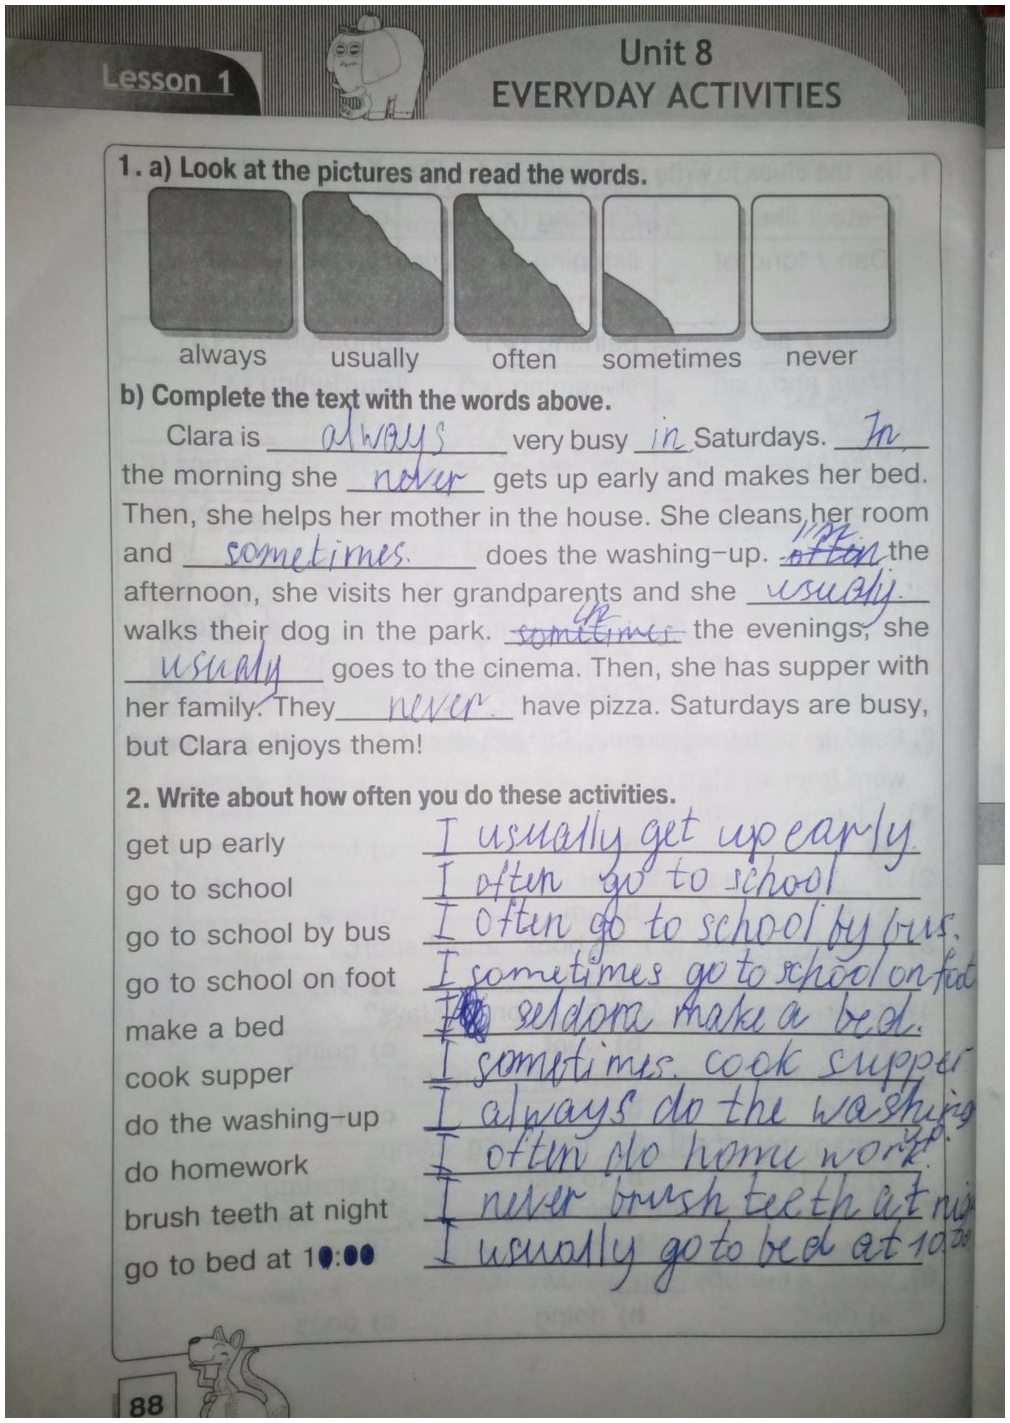 Lesson 1
Unit 8
EVERYDAY ACTIVITIES
1. a) Look at the pictures and read the words.
always usually often sometimes never
b) Complete the text with the words above.
Clara is always very busy in Saturdays. In
the morning she never gets up early and makes her bed.
Then, she helps her mother in the house. She cleans her room
and sometimes. does the washing-up. often the
afternoon, she visits her grandparents and she usualy.
walks their dog in the park. sometimes in the evenings, she
usualy goes to the cinema. Then, she has supper with
her family. They never have pizza. Saturdays are busy,
but Clara enjoys them!
2. Write about how often you do these activities.
get up early I usually get up early.
go to school I often go to school
go to school by bus I often go to school by bus.
go to school on foot I sometimes go to school on foot
make a bed I seldom make a bed.
cook supper I sometimes. cook supper
do the washing-up I always do the washing up.
do homework I often do home work.
brush teeth at night I never brush teeth at nigh
go to bed at 10:00 I usually go to bed at 10.00
88